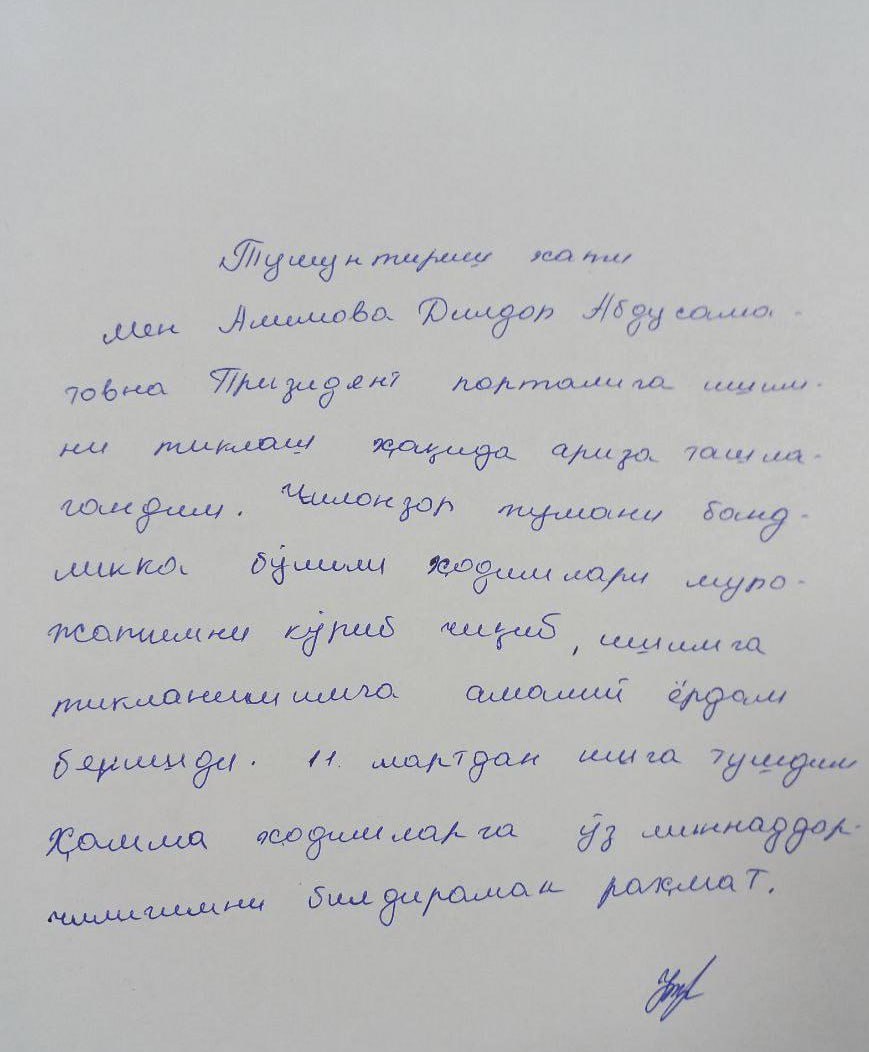 Тушунтириш хати
Мен Алимова Дилдор Абдусама-
товна Призидент порталига ишим-
ни тиклаш ҳақида ариза ташла-
гандим. Чилонзор тумани банд-
ликка бўлими ҳодимлари муро-
жатимни кўриб чиқиб, ишимга
тикланишимга амалий ёрдам
беришди. 11. мартдан ишга тушдим
Ҳамма ҳодимларга ўз миннаддор-
чилигимни билдираман раҳмат.